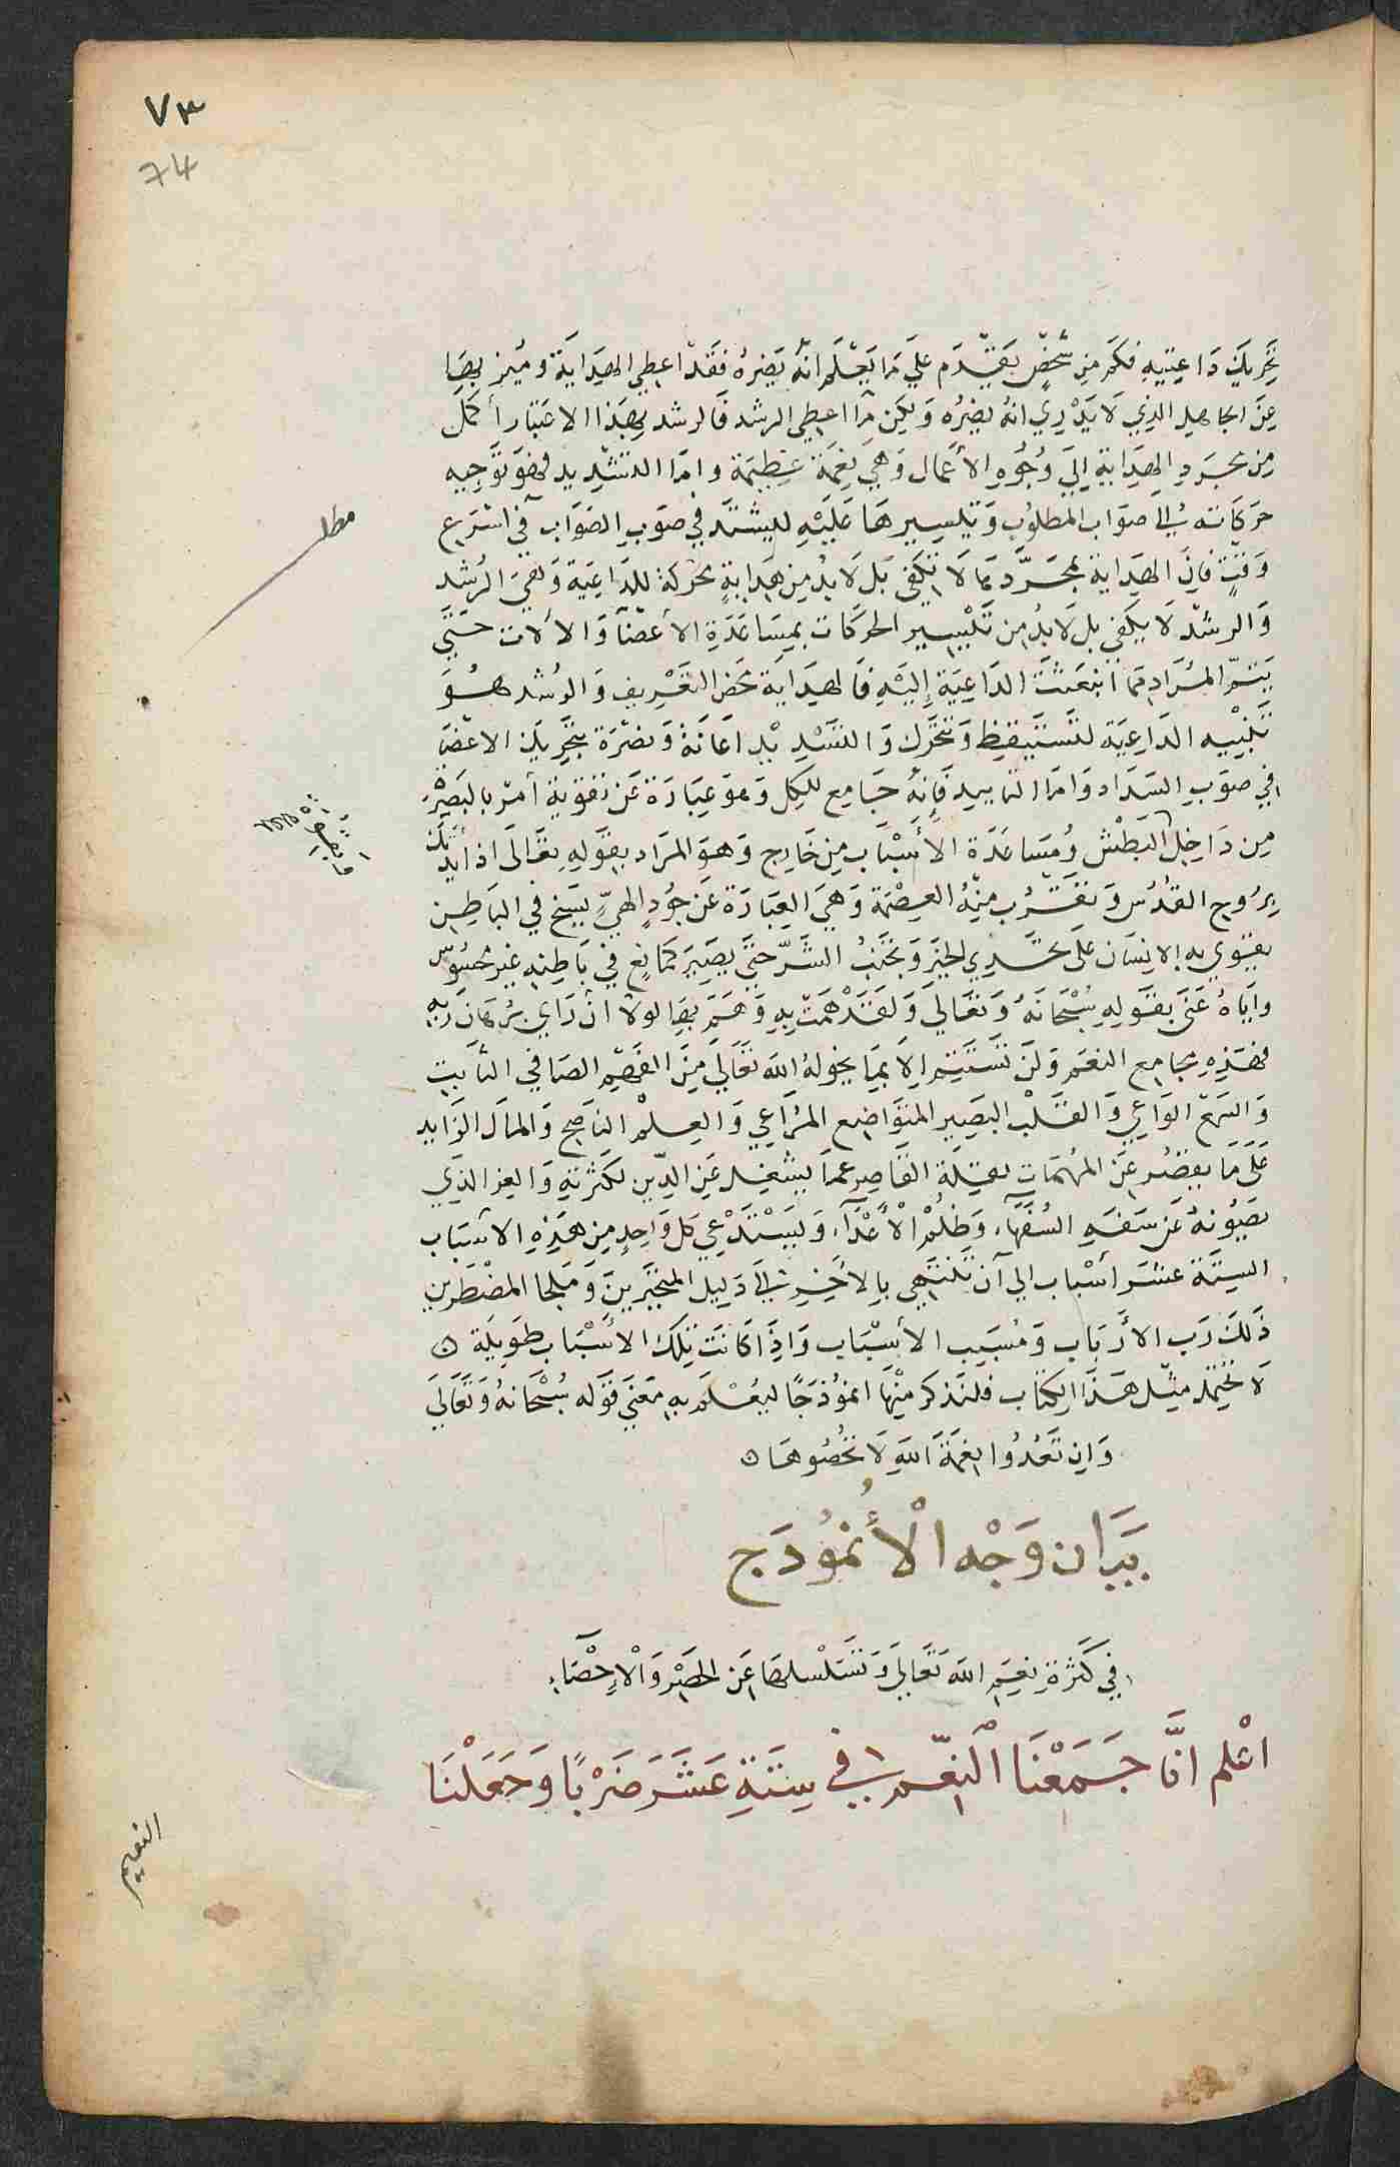 ٧٣
74
تحريك داعيته فكم من شخص يقدم علي ما يعلم انه يضره فقد اعطي الهداية وميز بها
عن الجاهل الذي لا يدري انه يضره ولكن ما اعطي الرشد فالرشد بهذا الاعتبار أكمل
من مجرد الهداية إلي وجوه الأعمال وهي نعمة عظيمة واما التشديد فهو توجيه
حركاته إلى صواب المطلوب وتيسيرها عليه ليشتد في صوب الصواب في اسرع
وقت فان الهداية بمجردها لا تكفي بل لا بد من هداية محركة للداعية وهي الرشد
والرشد لا يكفي بل لا بد من تيسير الحركات بمساعدة الأعضآ والألات حتي
يتم المراد مما انبعثت الداعية إليه فالهداية محض التعريف والرشد هو
تنبيه الداعية لتستيقظ وتتحرك والتسديد اعانة ونصرة بتحريك الاعضا
في صوب السداد واما التاييد فإنه جامع للكل وهو عبارة عن تقوية أمره بالبصيرة
من داخل البطش ومساعدة الأسباب من خارج وهو المراد بقوله تعالى اذ أيدتك
بروح القدس وتقرب منه العصمة وهي العبارة عن جود إلهي يسنح في الباطن
يقوي به الانسان على تحري الخير وتجنب الشر حتي يصير كمانع في باطنه غير محسوس
واياه عنى بقوله سبحانه وتعالي ولقد همت به وهم بها لولا ان رأي برهان ربه
فهذه مجامع النعم ولن تستتم إلا بما يخوله الله تعالي من الفهم الصافي الثابت
والسمع الواعي والقلب البصير المتواضع المراعي والعلم الناصح والمال الزايد
على ما يقصر عن المهمات بقلة القاصر عما يشغل عن الدين لكثرته والعز الذي
يصونه عن سفه السفهاء وظلم الأعدآء ويستدعي كل واحد من هذه الاسباب
الستة عشر أسباب الي أن تنتهي بالأخر إلى دليل المتحيرين وملجا المضطرين
ذلك رب الأرباب ومسبب الأسباب واذا كانت تلك الأسباب طويلة ه
لا يحتمل مثل هذا الكتاب فلنذكر منها انموذجا ليعلم به معني قوله سبحانه وتعالى
وان تعدوا نعمة الله لا تحصوها ه
بيان وجه الأنموذج
في كثرة نعم الله تعالي وتسلسلها عن الحصر والإحصاء
اعلم انا جمعنا النعم في ستة عشر ضربا وجعلنا
مطلب